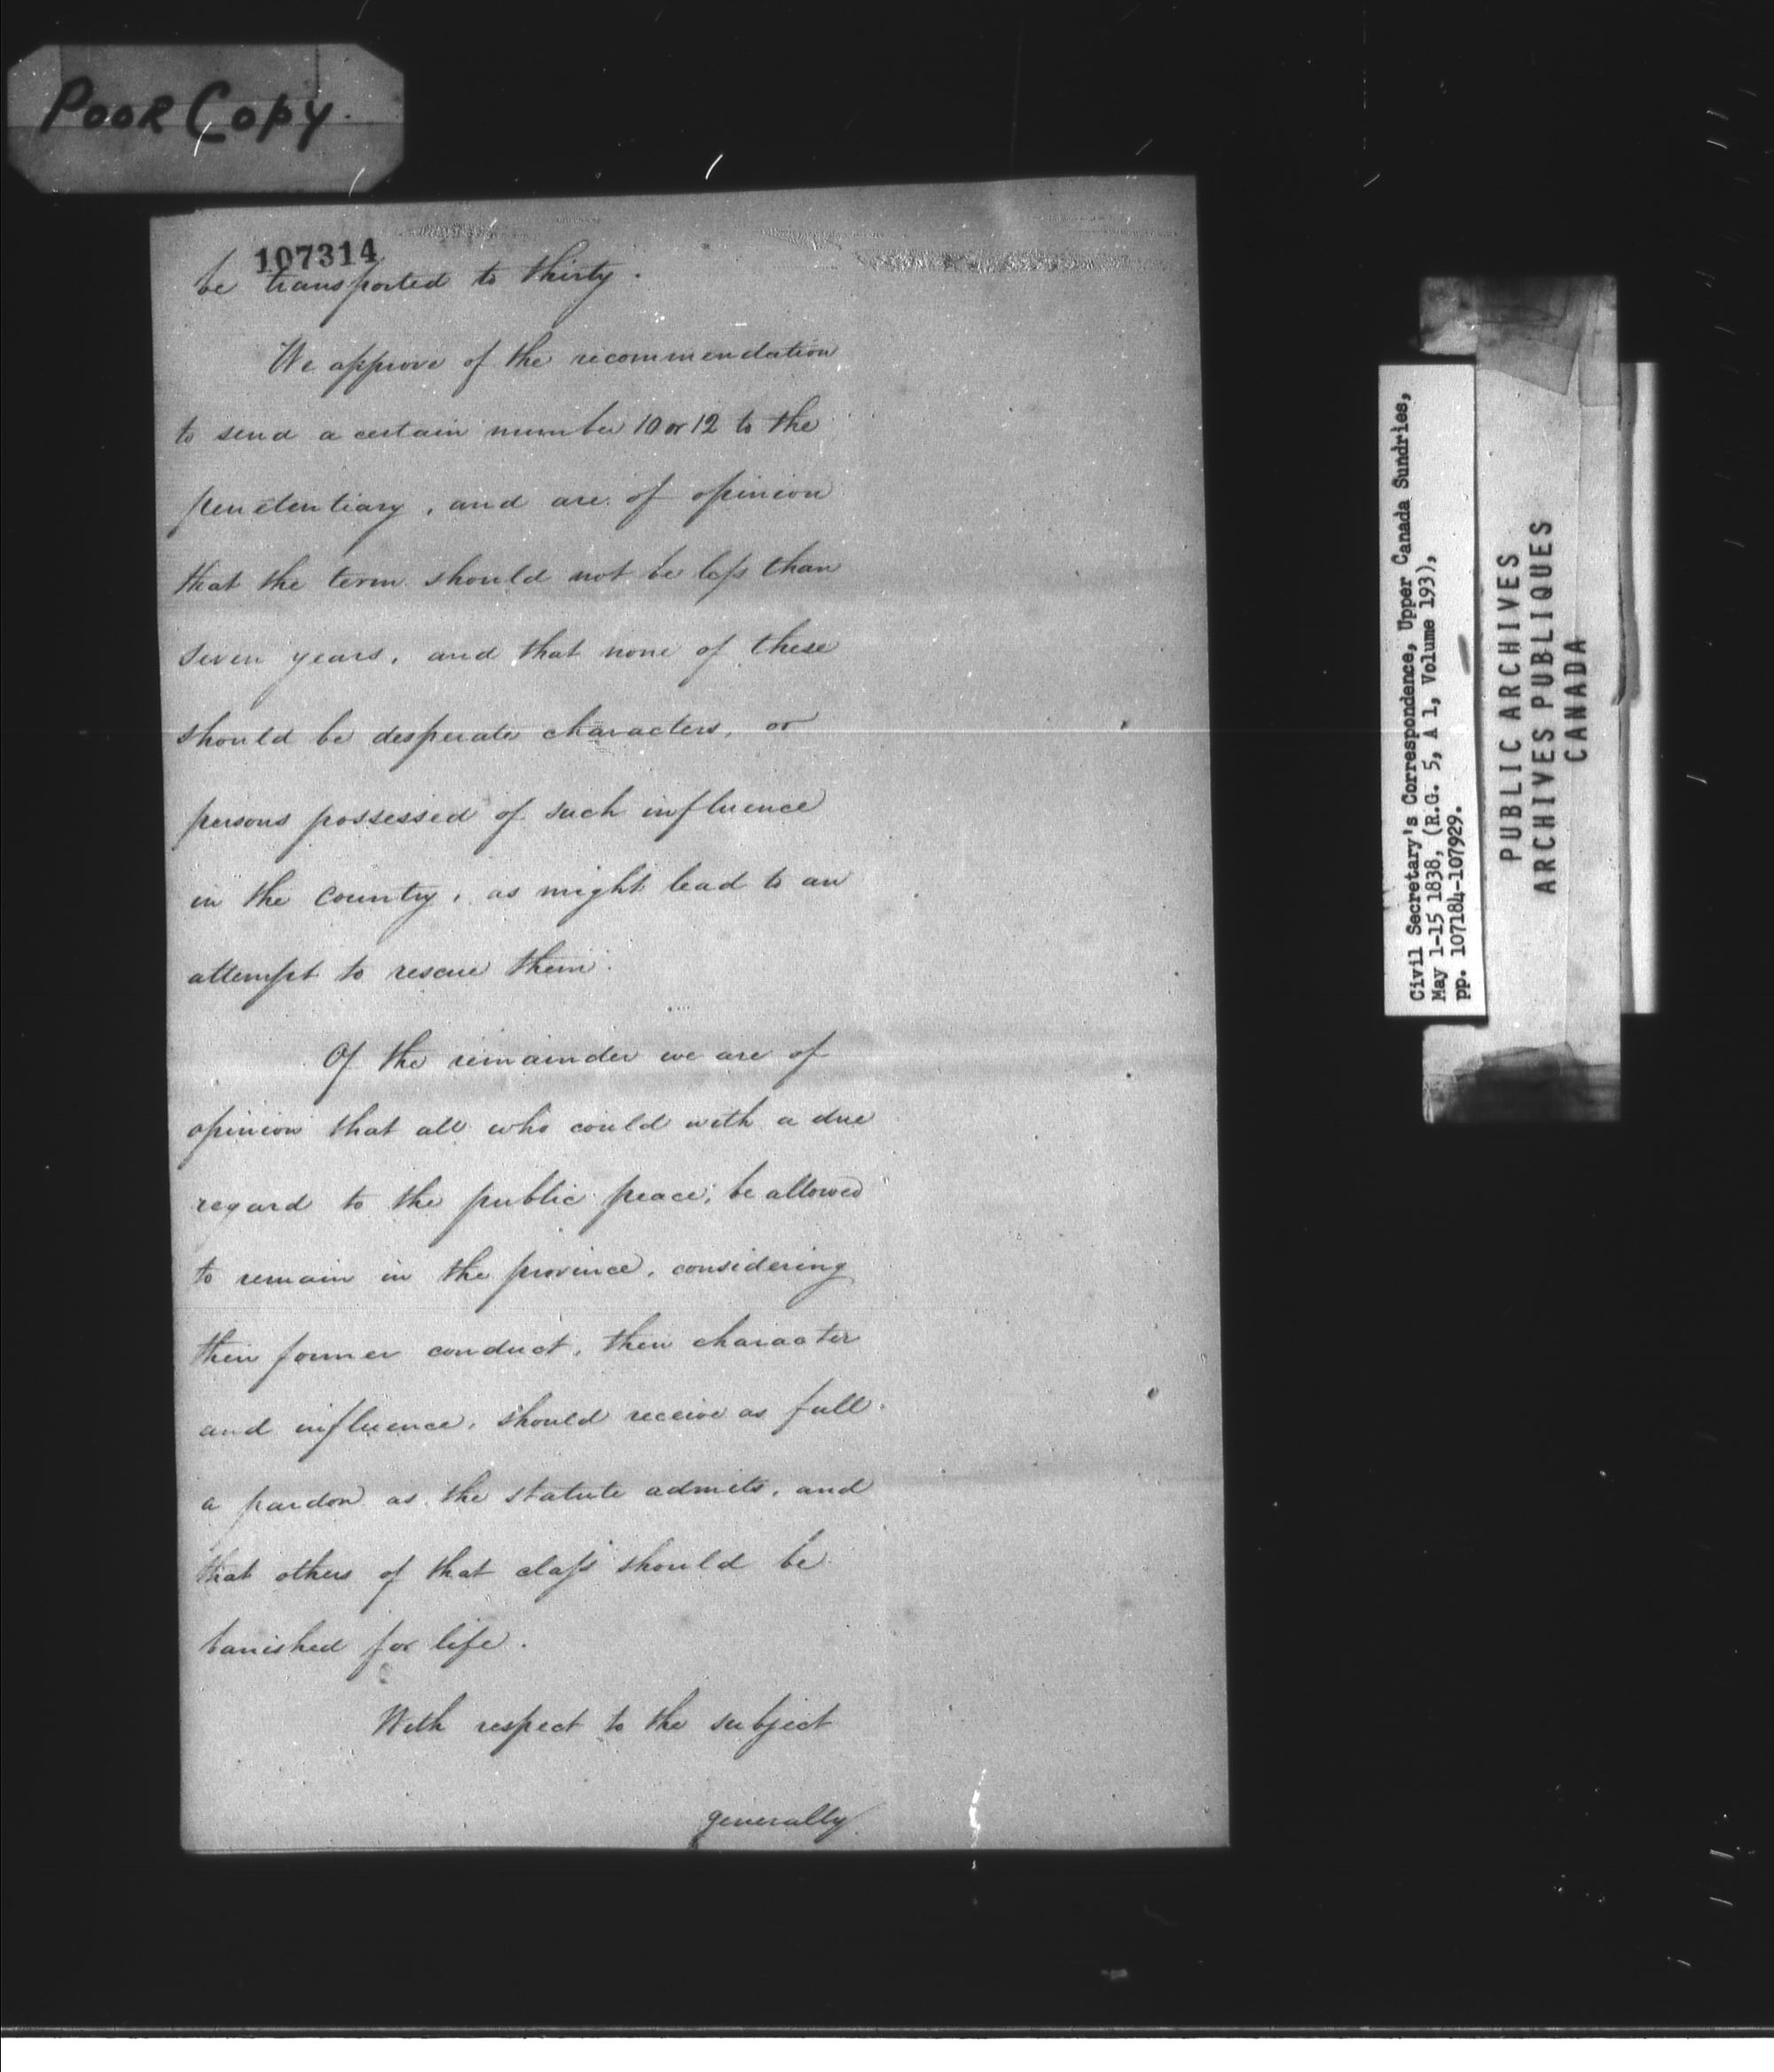 POOR COPY.
107314
be transported to thirty.
We approve of the recommendation
to send a certain number 10 or 12 to the
penetentiary, and are of opinion
that the term should not be leſs than
seven years, and that none of these
should be desperate characters, or
persons possessed of such influence
in the country, as might lead to an
attempt to rescue them.
Of the remainder we are of
opinion that all who could with a due
regard to the public peace, be allowed
to remain in the province, considering
their former conduct, their character
and influence, should receive as full
a pardon as the statute admits, and
that others of that claſs should be
banished for life.
With respect to the subject
generally
Civil Secretary's Correspondence, Upper Canada Sundries,
May 1-15 1838, (R.G. 5, A 1, Volume 193),
pp. 107184-107929.
PUBLIC ARCHIVES
ARCHIVES PUBLIQUES
CANADA